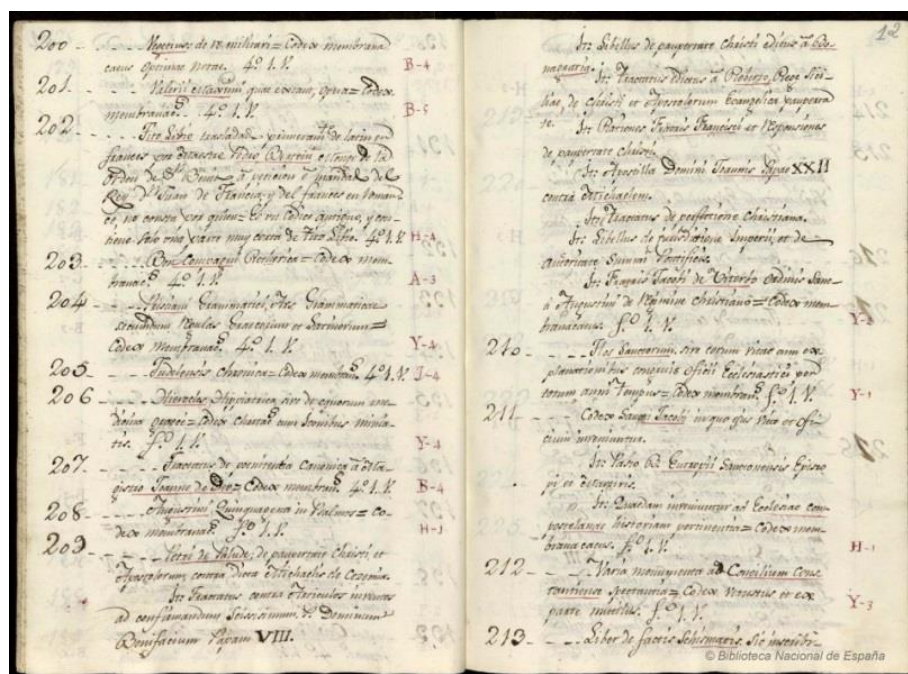 200 - - - - Vegetius de re militari = Codex membrana
caeus optimae notae. 4º 1. V. B-4
201. - - - - Valerii Maximi quae extant, opera = Codex
membranac.s - - 4º 1. V. B-5
202 - - - - Tito Livio trasladado primeramte de latin en
frances por Maestre Pedro
Orden de Sn á peticion y mandado del
Rey Dn Juan de Francia, y del frances en Roman
ce no consta por quien = Es un Codice antiguo, y con-
tiene solo una parte muy corta de Tito Livio. 4º 1. V. H-4
203 - - - - Rethorica = Codex mem-
branac.s 4º 1. V. A-3
204 - - - - Grammatici, Ars Grammaticae
secundum Regulas Graecorum et Latinorum =
Codex membranac.s 4º 1. V. Y-4
205 - - - - Tudelensis Chronica = Codex membran.s 4º 1. V. J-4
206 - - - - Hieroclis Hippiatrica, sive de equorum me-
dicina graecè = Codex chartac.s cum finibus minia-
tis. fº 1. V. Y-4
207 - - - - Tractatus de poenitentia Canonica à Ma-
gistro Joanne de Deo = Codex membran.s 4º 1. V. B-4
208 - - - - Augustini Quinquagena in Psalmos = Co-
dex membranac.s fº 1. V. H-1
209 - - - - Petri de Palude, de paupertate Christi et
Apostolorum, contra dicta Michaelis de Cezena.
It: Tractatus contra Articulos inventos
ad confirmandum Dominum
Bonifacium Papam VIII.
12
It: Libellus de paupertate Christi editus à
It: Tractatus editus à Roberto, Rege Sici-
liae, de Christi et Apostolorum Evangelica pauperta
te.
It: Rationes Fratris Francisci et Responsiones
de paupertate Christi.
It: Apostilla Domini Joannis Papae XXII
contra Michaelem.
It: Tractatus de perfectione Christiana.
It: Libellus de jurisdictione Imperii, et de
auctoritate Summi Pontificis.
It: Fratris Jacobi de Viterbo Ordinis Sanc-
ti Augustini de Regimine Christiano = Codex mem
branaceus. fº 1. V. Y-3
210 - - - - Flos Sanctorum, sive eorum vitae cum ex
planationibus congruis oficii Ecclesiastici per
totum anni tempus = Codex membran.s fº 1. V. Y-1
211 - - - - Codex Sancti Jacobi in quo ejus vita et ofi
cium inveniuntur.
It: Passio B. Eutropii Episco
pi et Martyris.
It: Quaedam inveniuntur ad Ecclesiae com
postelanae historiam pertinentia = Codex mem
branaceus. fº 1. V. H-1
212 - - - - Varia monumenta ad Concilium Cons
tantiense spectantia = Codex vetustus et ex
parte mutilus. fº 1. V. Y-3
213 - - - - Liber de factis Schismatis, sic inscribi-
© Biblioteca Nacional de España